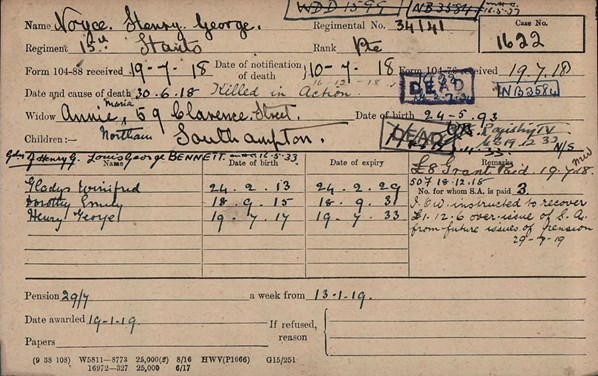 WDD 1599 NB3584
Name Noyce. Henry George. Regimental No. 34141 Case No.
Regiment 15th Hants Rank Pte 1622
Form 104-88 received 19-7-18 Date of notification of death 10-7-18 Form 104-76 received 19.7.18
Date and cause of death 30.6.18 Killed in Action. DEAD NB3584
Widow Annie Maria 59 Clarence Street. Date of birth 24-5-93
Children:— Northam Southampton. DEAD N/S
Henry G. Louis George BENNETT. 16.5.33
Name Date of birth Date of expiry Remarks
£8 Grant Paid 19.7.18
507 18.12.18
Gladys Winifred 24.2.13 24.2.29 No. for whom S.A. is paid 3.
Dorothy Emily 18.9.15 18.9.31 instructed to recover
Henry George 19.7.17 19.7.33 £1.12.6 over-issue of S.A.
from future issues of pension
29-7-19
Pension 29/7 a week from 13-1-19.
Date awarded 19-1-19. If refused, reason
Papers
(9 38 108) W5811—8773 25,000(2) 8/16 HWV(P1666) G15/251
16972—327 25,000 6/17